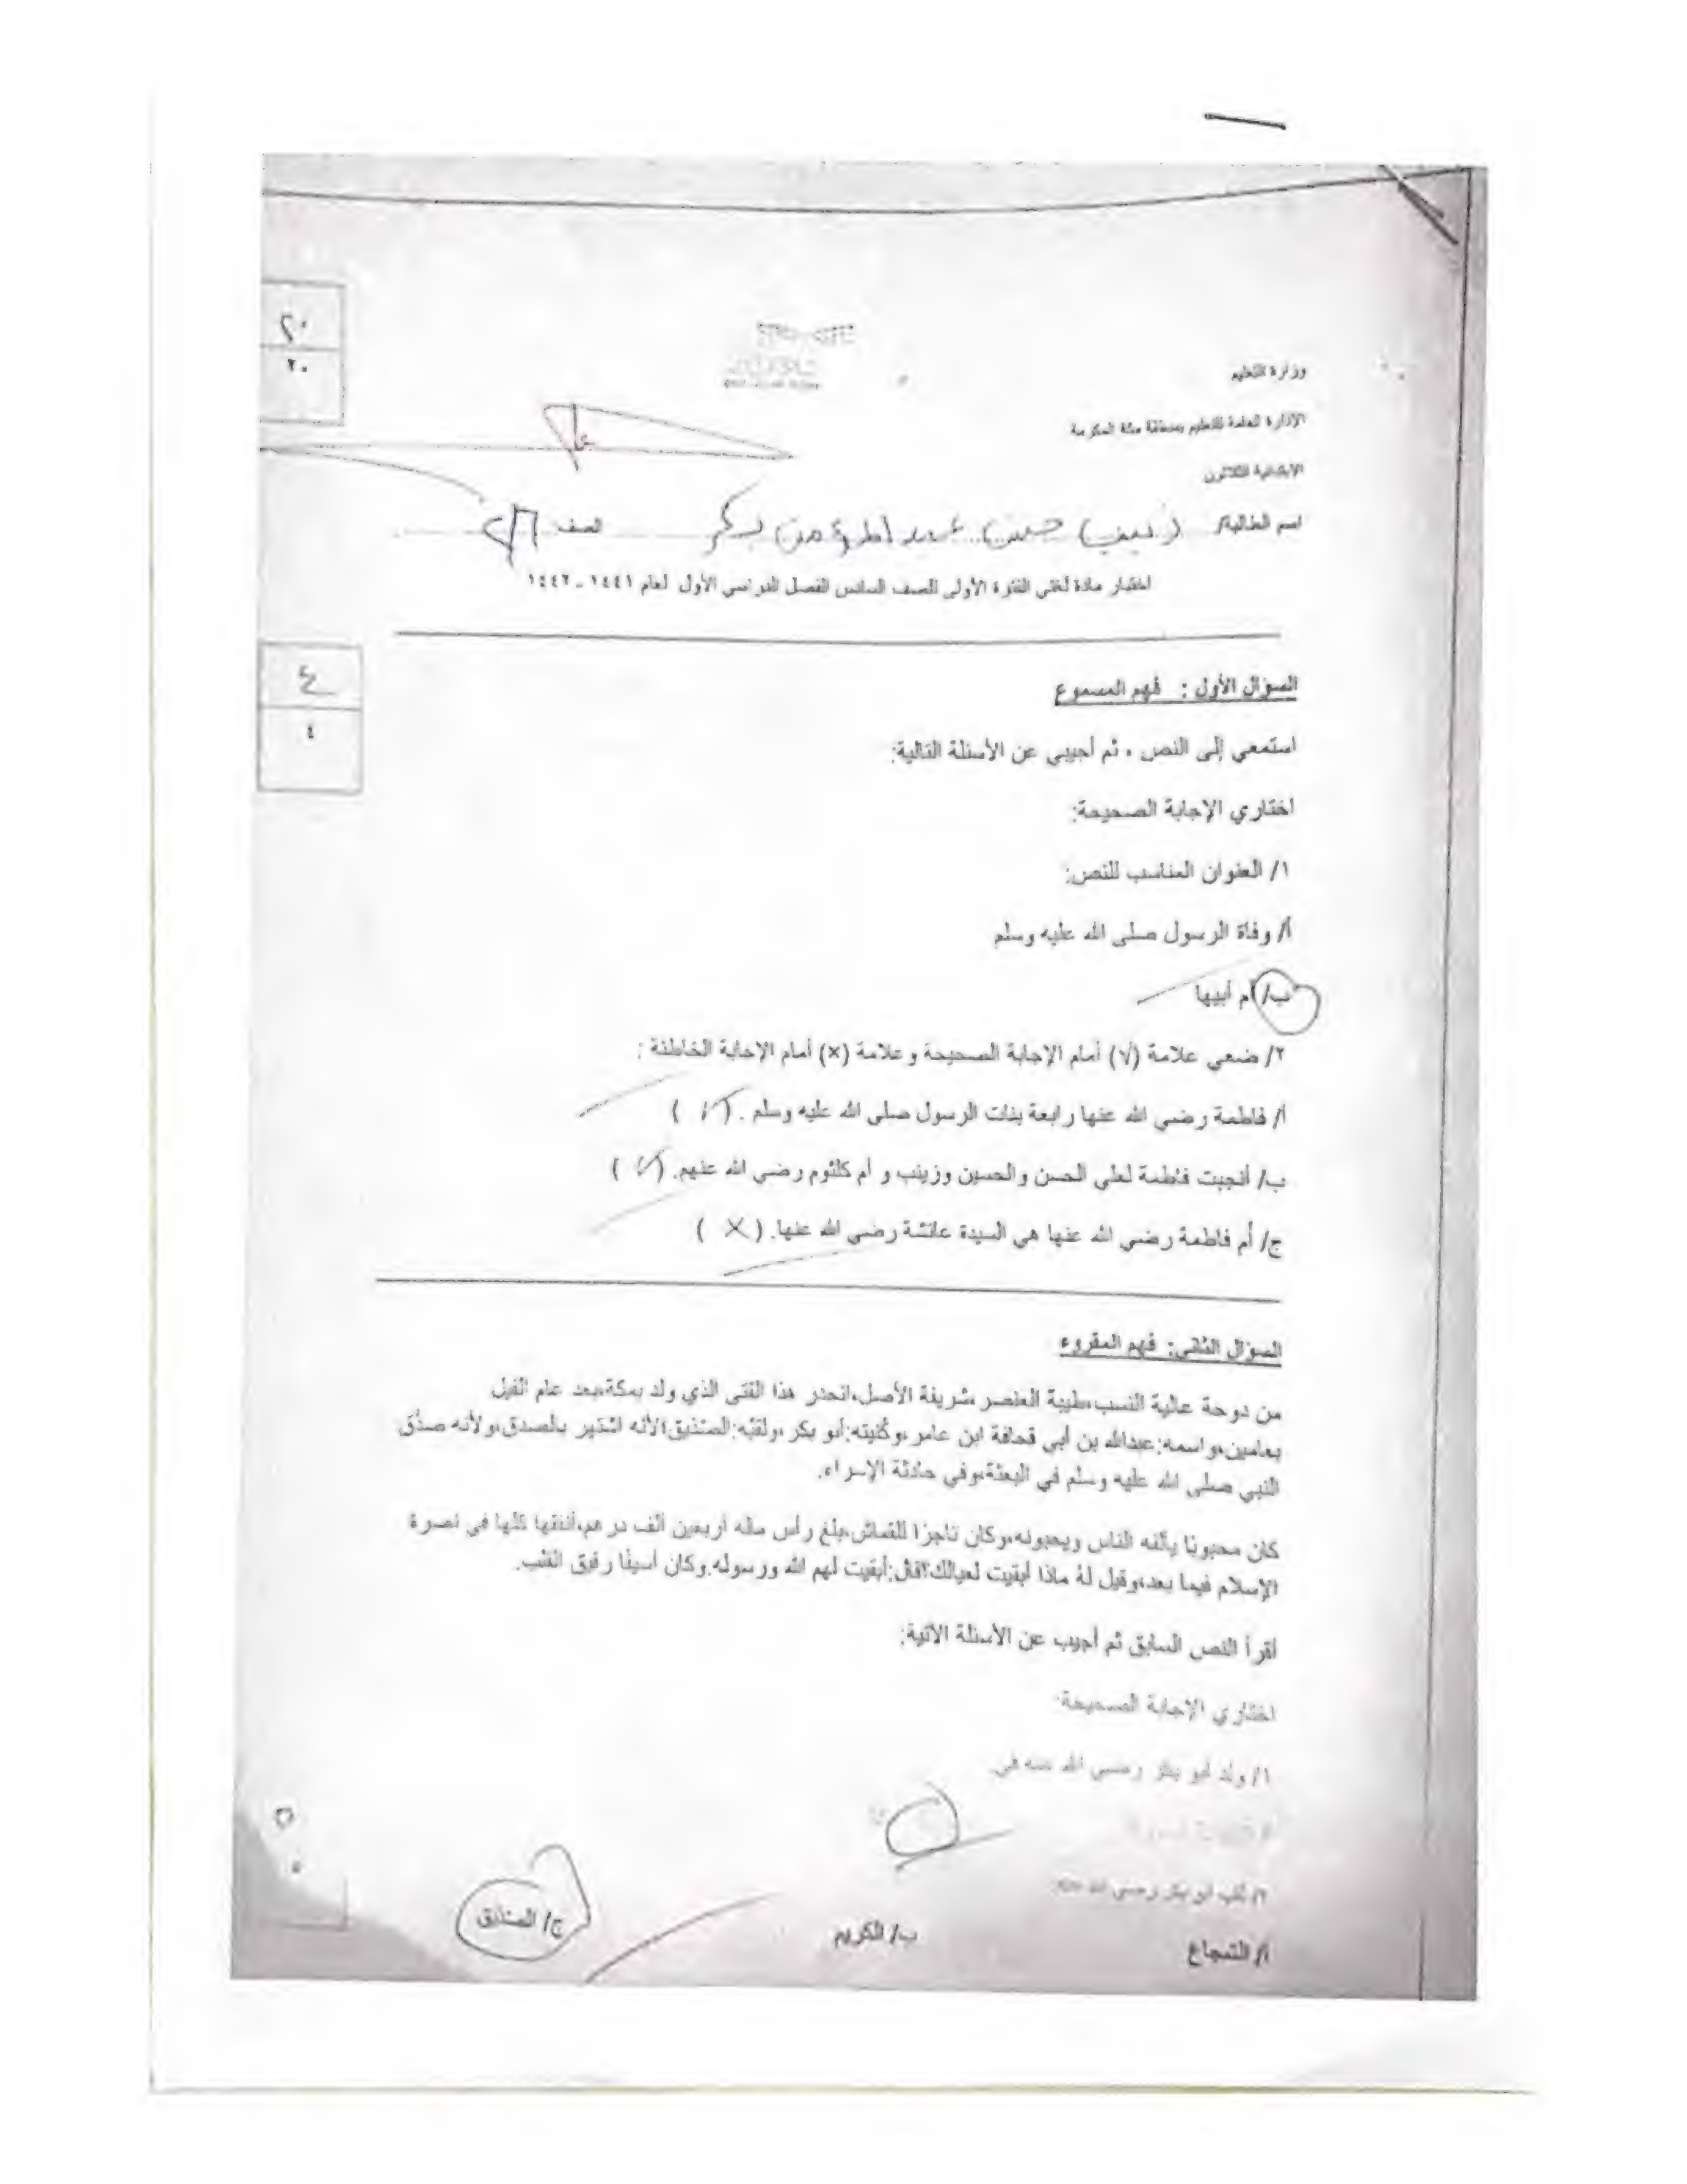 ٢٠
٢٠
وزارة التعليم
الإدارة العامة للتعليم بمنطقة مكة المكرمة
الابتدائية الثلاثون
اسم الطالبة/ حسن عبد بكر الصف ٢/٦
اختبار مادة لغتي الفترة الأولى للصف السادس الفصل الدراسي الأول لعام ١٤٤١ - ١٤٤٢
٤
٤
السؤال الأول : فهم المسموع
استمعي إلى النص ، ثم أجيبي عن الأسئلة التالية:
اختاري الإجابة الصحيحة:
١/ العنوان المناسب للنص:
أ/ وفاة الرسول صلى الله عليه وسلم
ب/ أم أبيها
٢/ ضعي علامة (√) أمام الإجابة الصحيحة وعلامة (×) أمام الإجابة الخاطئة :
أ/ فاطمة رضي الله عنها رابعة بنات الرسول صلى الله عليه وسلم . ( √ )
ب/ أنجبت فاطمة لعلي الحسن والحسين وزينب و أم كلثوم رضي الله عنهم. ( √ )
ج/ أم فاطمة رضي الله عنها هي السيدة عائشة رضي الله عنها. ( × )
السؤال الثاني: فهم المقروء
من دوحة عالية النسب،طيبة العنصر،شريفة الأصل،انحدر هذا الفتى الذي ولد بمكة،بعد عام الفيل
بعامين،واسمه:عبدالله بن أبي قحافة ابن عامر،وكُنيته:أبو بكر،ولقبُه:الصدّيق؛لأنه اشتهر بالصدق،ولأنه صدَّق
النبي صلى الله عليه وسلم في البعثة،وفي حادثة الإسراء.
كان محبوبًا يألفه الناس ويحبونه،وكان تاجرًا للقماش،بلغ رأس ماله أربعين ألف درهم،أنفقها كلها في نصرة
الإسلام فيما بعد،وقيل لهُ ماذا أبقيت لعيالك؟قال:أبقيت لهم الله ورسوله.وكان أسيفًا رقيق القلب.
أقرأ النص السابق ثم أجيب عن الأسئلة الآتية:
اختاري الإجابة الصحيحة:
١/ ولد أبو بكر رضي الله عنه في:
٢/ لُقب أبو بكر رضي الله عنه:
أ/ الشجاع
ب/ الكريم
ج/ الصدّيق